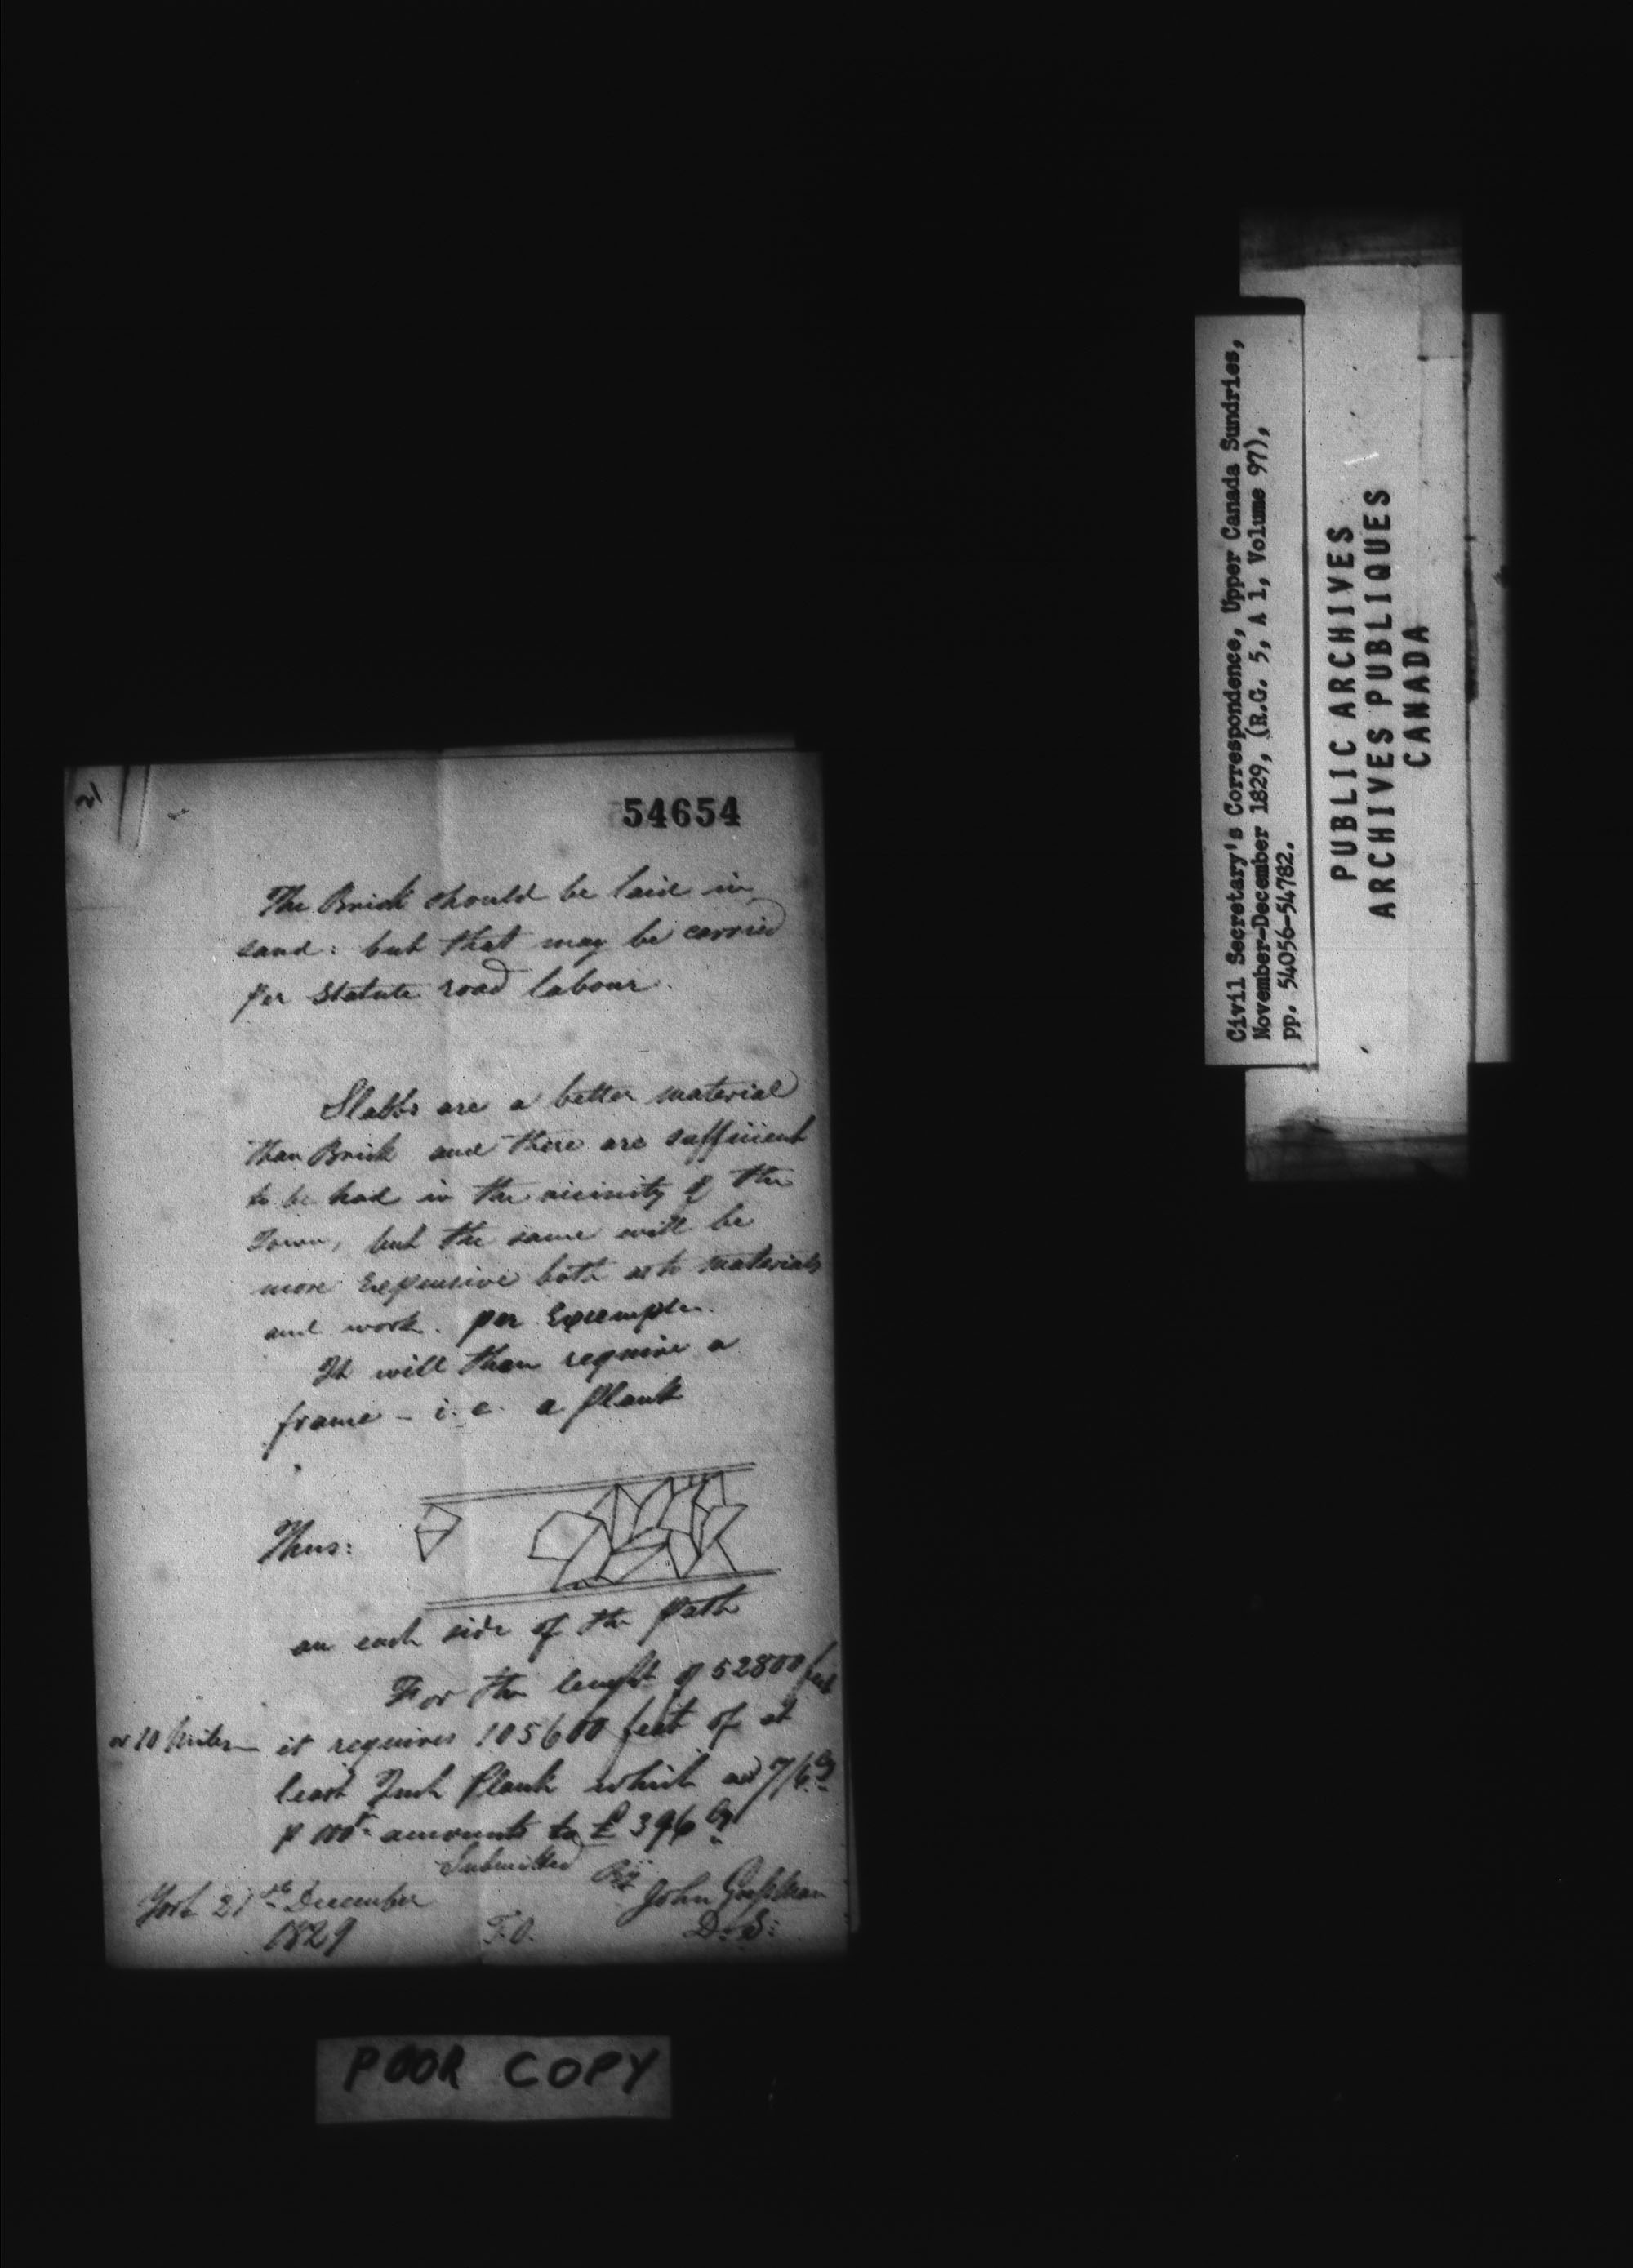 54654
The Brick should be laid in
sand: but that may be carried
per Statute road labour.
Slabbs are a better material
than Brick and there are sufficient
to be had in the vicinity of the
Town, but the same will be
more Expensive both as to materials
and work. per Exemple.
It will than require a
frame - i. e. a Plank
Thus:
on each side of the path
For the lenght of 52800 feet
or 10 Miles it requires 105600 feet of at
least Inch Plank which at 7/6 Cy
p 100 ft amounts to £ 396 Cy
Submitted By
York 21st December John Goessman
1829 T.O. D: S:
POOR COPY
Civil Secretary's Correspondence, Upper Canada Sundries,
November-December 1829, (R.G. 5, A 1, Volume 97),
pp. 54056-54782.
PUBLIC ARCHIVES
ARCHIVES PUBLIQUES
CANADA